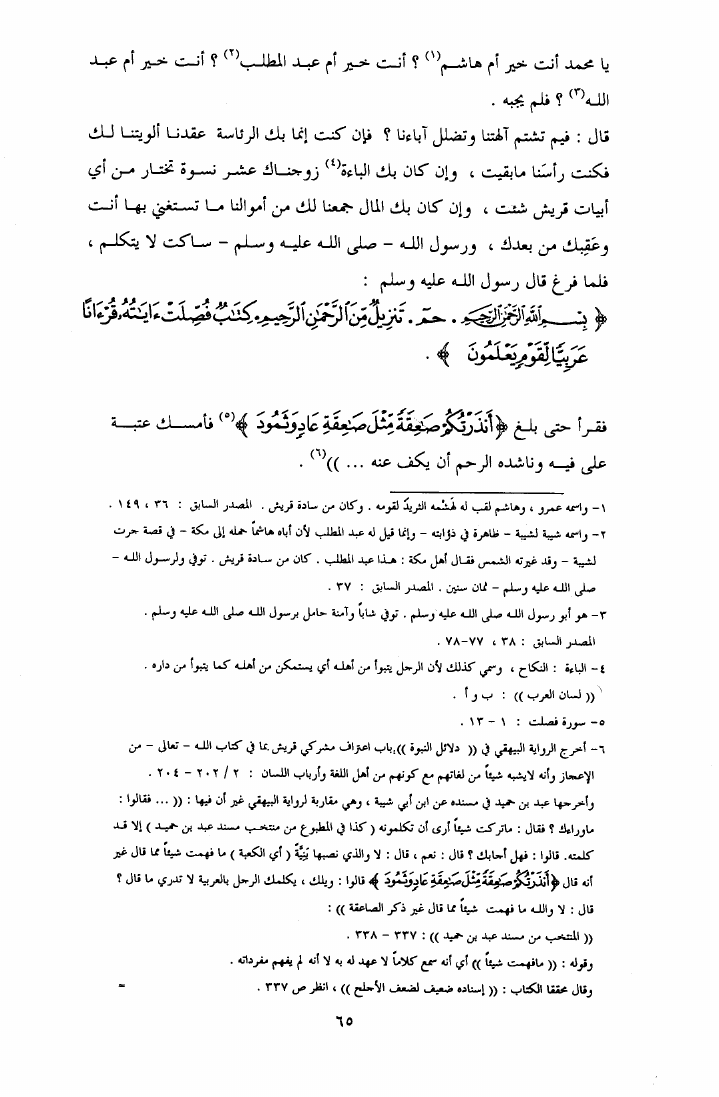 يا محمد أنت خير أم هاشـم(١) ؟ أنت خير أم عبد المطلب(٢) ؟ أنت خير أم عبد
اللـه(٣) ؟ فلم يجبه .
قال : فيم تشتم آلهتنا وتضلل آباءنا ؟ فإن كنت إنما بك الرئاسة عقدنا ألويتنا لك
فكنت رأسَنا مابقيت ، وإن كان بك الباءة(٤) زوجناك عشر نسوة تختار من أي
أبيات قريش شئت ، وإن كان بك المال جمعنا لك من أموالنا ما تستغني بها أنت
وعَقِبك من بعدك ، ورسول اللـه – صلى اللـه عليـه وسلم – ساكت لا يتكلم ،
فلما فرغ قال رسول اللـه عليه وسلم :
﴿ بِسْمِ اللَّهِ الرَّحْمَٰنِ الرَّحِيمِ . حمٓ . تَنزِيلٌ مِّنَ ٱلرَّحْمَٰنِ ٱلرَّحِيمِ . كِتَٰبٌ فُصِّلَتْ ءَايَٰتُهُۥ قُرْءَانًا
عَرَبِيًّا لِّقَوْمٍ يَعْلَمُونَ ﴾ .
فقرأ حتى بلغ ﴿ أَنذَرْتُكُمْ صَٰعِقَةً مِّثْلَ صَٰعِقَةِ عَادٍ وَثَمُودَ ﴾(٥) فأمسك عتبة
على فيـه وناشده الرحم أن يكف عنه ... ))(٦) .
١– واسمه عمرو ، وهاشم لقب له لهَشْمه الثريدَ لقومه . وكان من سادة قريش . المصدر السابق : ٣٦ ، ١٤٩ .
٢– واسمه شيبة لشيبة – ظاهرة في ذؤابته – وإنما قيل له عبد المطلب لأن أباه هاشماً حمله إلى مكة – في قصة جرت
لشيبة – وقد غيرته الشمس فقال أهل مكة : هـذا عبد المطلب . كان من سـادة قريش . توفي ولرسول اللـه –
صلى اللـه عليه وسلم – ثمان سنين . المصدر السابق : ٣٧ .
٣– هو أبو رسول اللـه صلى اللـه عليه وسلم . توفي شاباً وآمنة حامل برسول اللـه صلى اللـه عليه وسلم .
المصدر السابق : ٣٨ ، ٧٧–٧٨ .
٤– الباءة : النكاح ، وسمي كذلك لأن الرجل يتبوأ من أهلـه أي يستمكن من أهلـه كما يتبوأ من داره .
(( لسان العرب )) : ب و أ .
٥– سورة فصلت : ١ – ١٣ .
٦– أخرج الرواية البيهقي في (( دلائل النبوة ))،باب اعتراف مشركي قريش بما في كتاب اللـه – تعالى – من
الإعجاز وأنه لايشبه شيئاً من لغاتهم مع كونهم من أهل اللغة وأرباب اللسان : ٢ / ٢٠٢ – ٢٠٤ .
وأخرجها عبد بن حميد في مسنده عن ابن أبي شيبة ، وهي مقاربة لرواية البيهقي غير أن فيها : (( ... فقالوا :
ماوراءك ؟ فقال : ماتركت شيئاً أرى أن تكلمونه ( كذا في المطبوع من منتخب مسند عبد بن حميد ) إلا قد
كلمته. قالوا : فهل أجابك ؟ قال : نعم ، قال : لا والذي نصبها بَنِيَّةً ( أي الكعبة ) ما فهمت شيئاً مما قال غير
أنه قال ﴿ أَنذَرْتُكُمْ صَٰعِقَةً مِّثْلَ صَٰعِقَةِ عَادٍ وَثَمُودَ ﴾ قالوا : ويلك ، يكلمك الرجل بالعربية لا تدري ما قال ؟
قال : لا والله ما فهمت شيئاً مما قال غير ذكر الصاعقة )) :
(( المنتخب من مسند عبد بن حميد )) : ٣٣٧ – ٣٣٨ .
وقوله : (( مافهمت شيئاً )) أي أنه سمع كلاماً لا عهد له به لا أنه لم يفهم مفرداته .
وقال محققا الكتاب : (( إسناده ضعيف لضعف الأجلح )) ، انظر ص ٣٣٧ . =
٦٥